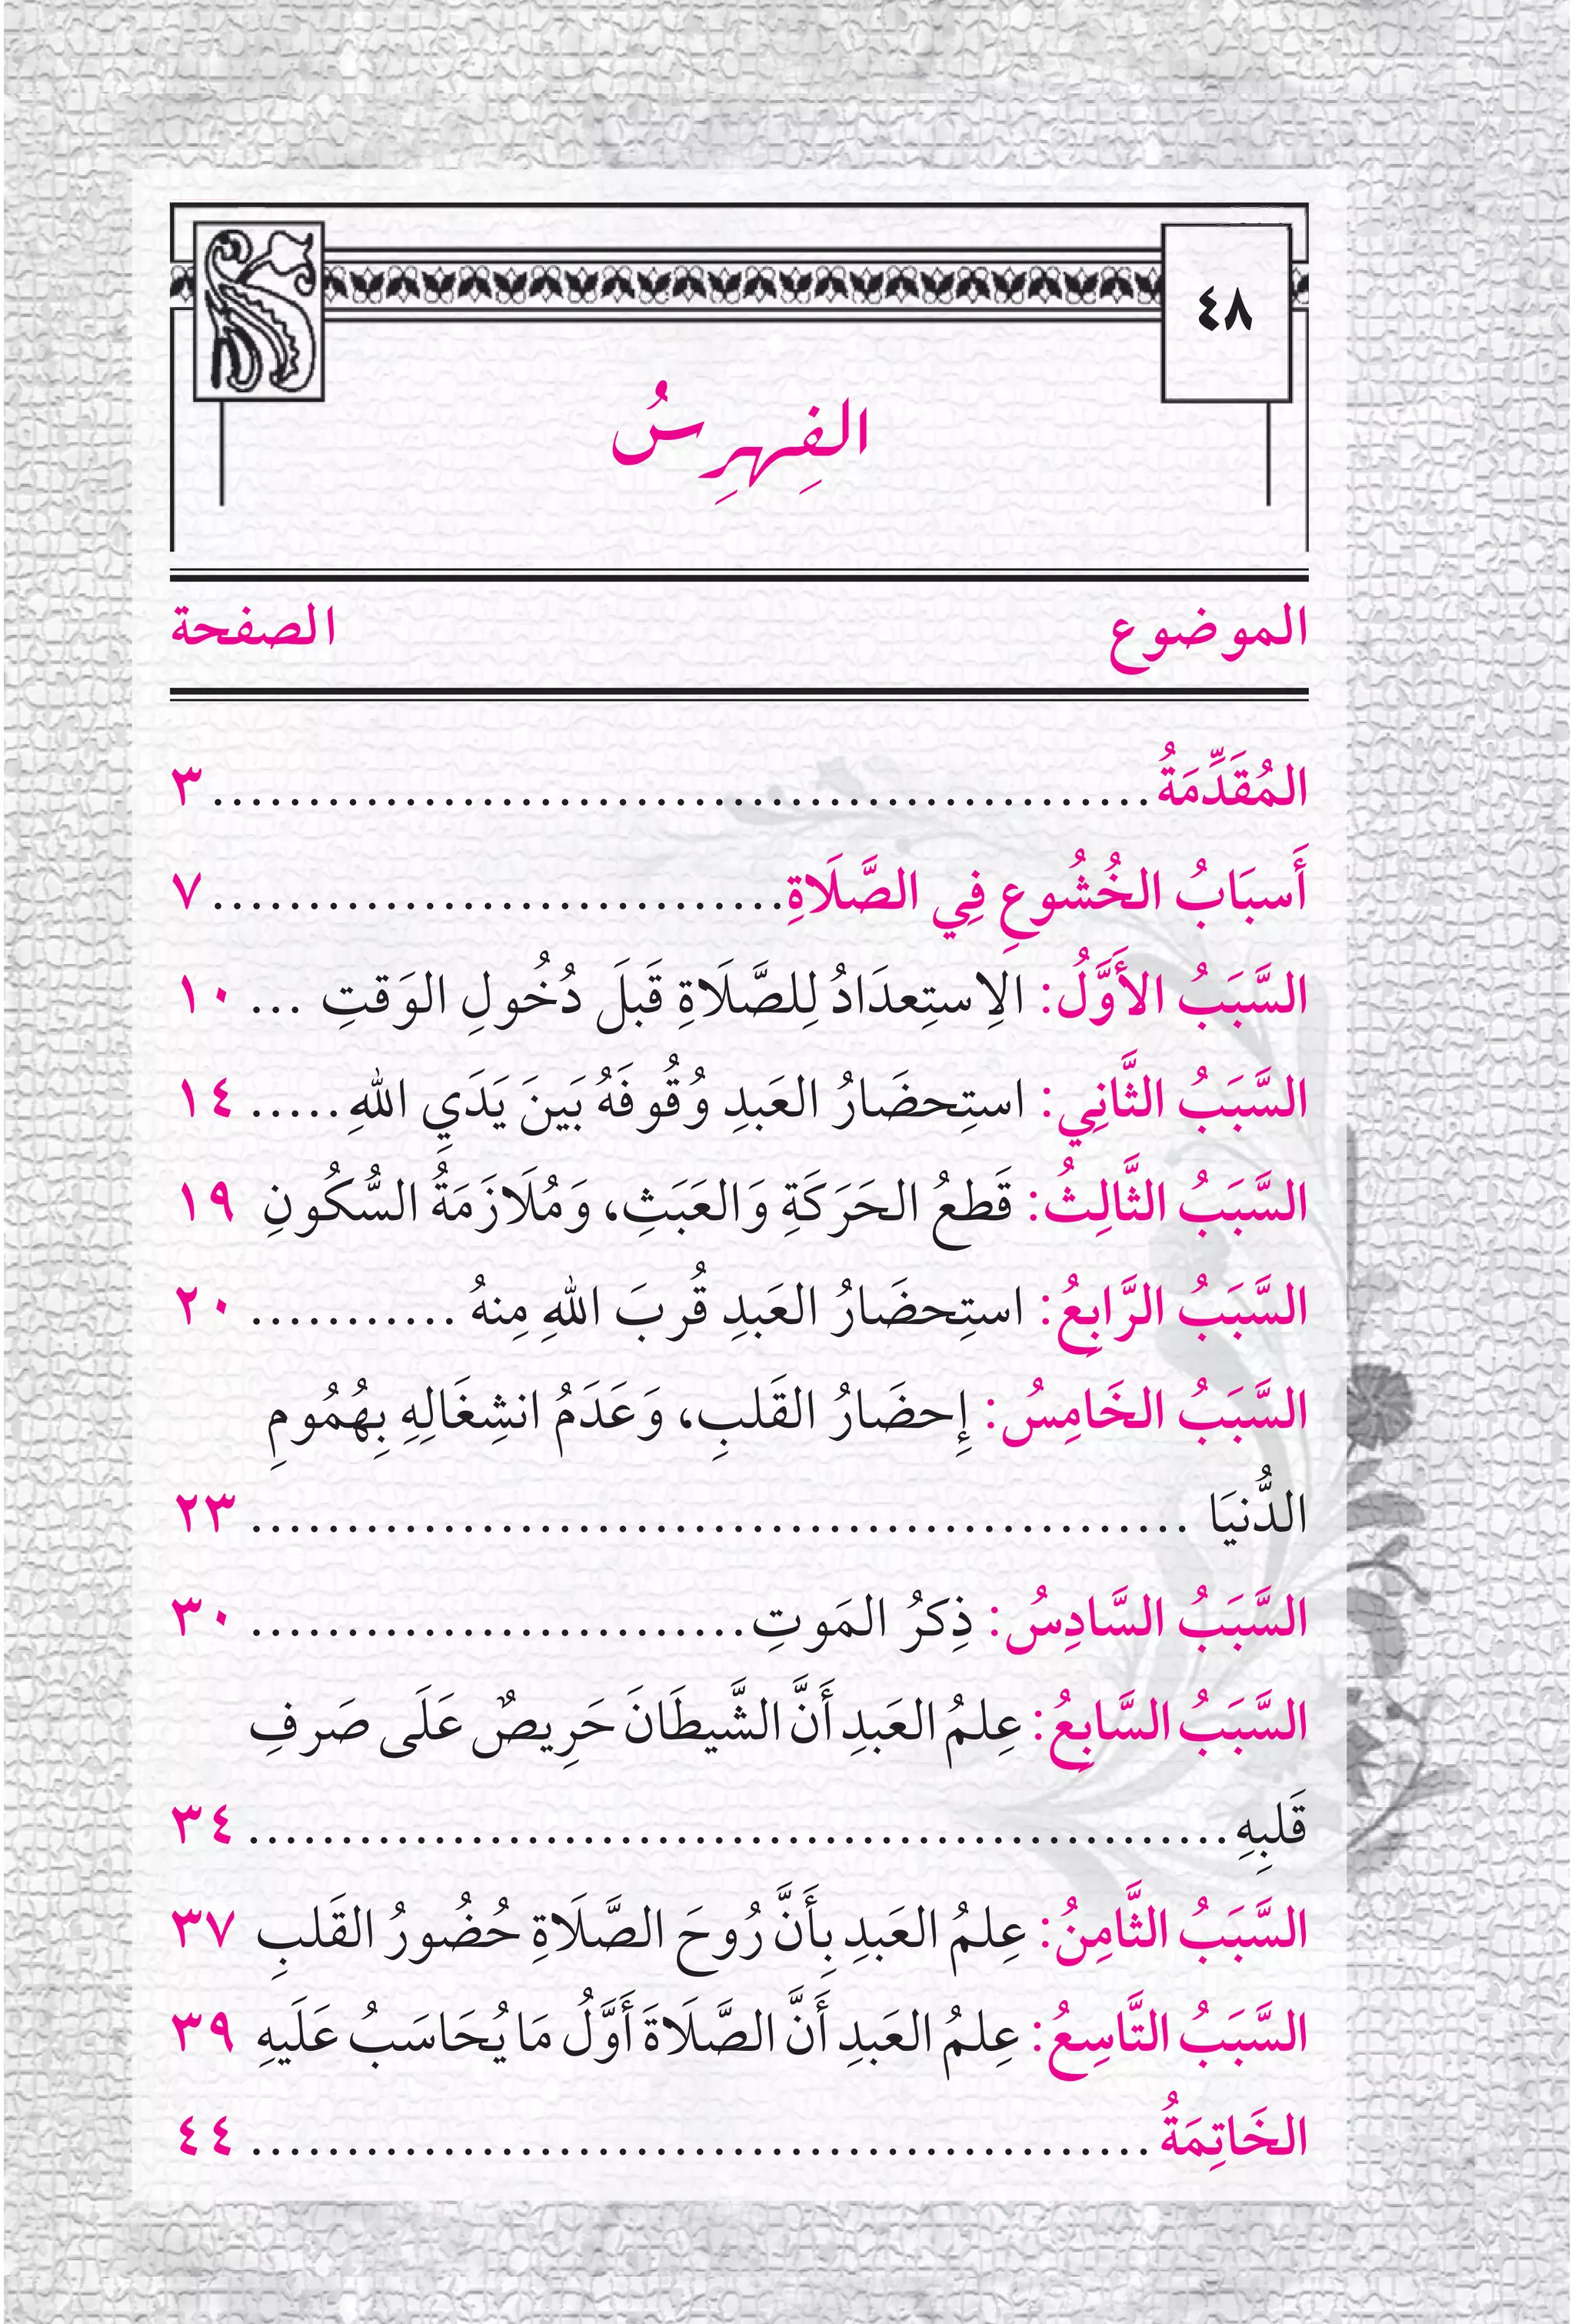 ٤٨
الفِهرِسُ
الموضوع الصفحة
المُقَدِّمَةُ ................................................ ٣
أَسبَابُ الخُشُوعِ فِي الصَّلَاةِ .............................. ٧
السَّبَبُ الأَوَّلُ: الِاستِعدَادُ لِلصَّلَاةِ قَبلَ دُخُولِ الوَقتِ ... ١٠
السَّبَبُ الثَّانِي: استِحضَارُ العَبدِ وُقُوفَهُ بَينَ يَدَيِ اللهِ ..... ١٤
السَّبَبُ الثَّالِثُ: قَطعُ الحَرَكَةِ وَالعَبَثِ، وَمُلَازَمَةُ السُّكُونِ ١٩
السَّبَبُ الرَّابِعُ: استِحضَارُ العَبدِ قُربَ اللهِ مِنهُ ........... ٢٠
السَّبَبُ الخَامِسُ: إِحضَارُ القَلبِ، وَعَدَمُ انشِغَالِهِ بِهُمُومِ
الدُّنيَا ................................................ ٢٣
السَّبَبُ السَّادِسُ: ذِكرُ المَوتِ .......................... ٣٠
السَّبَبُ السَّابِعُ: عِلمُ العَبدِ أَنَّ الشَّيطَانَ حَرِيصٌ عَلَى صَرفِ
قَلبِهِ .................................................. ٣٤
السَّبَبُ الثَّامِنُ: عِلمُ العَبدِ بِأَنَّ رُوحَ الصَّلَاةِ حُضُورُ القَلبِ ٣٧
السَّبَبُ التَّاسِعُ: عِلمُ العَبدِ أَنَّ الصَّلَاةَ أَوَّلُ مَا يُحَاسَبُ عَلَيهِ ٣٩
الخَاتِمَةُ ............................................... ٤٤